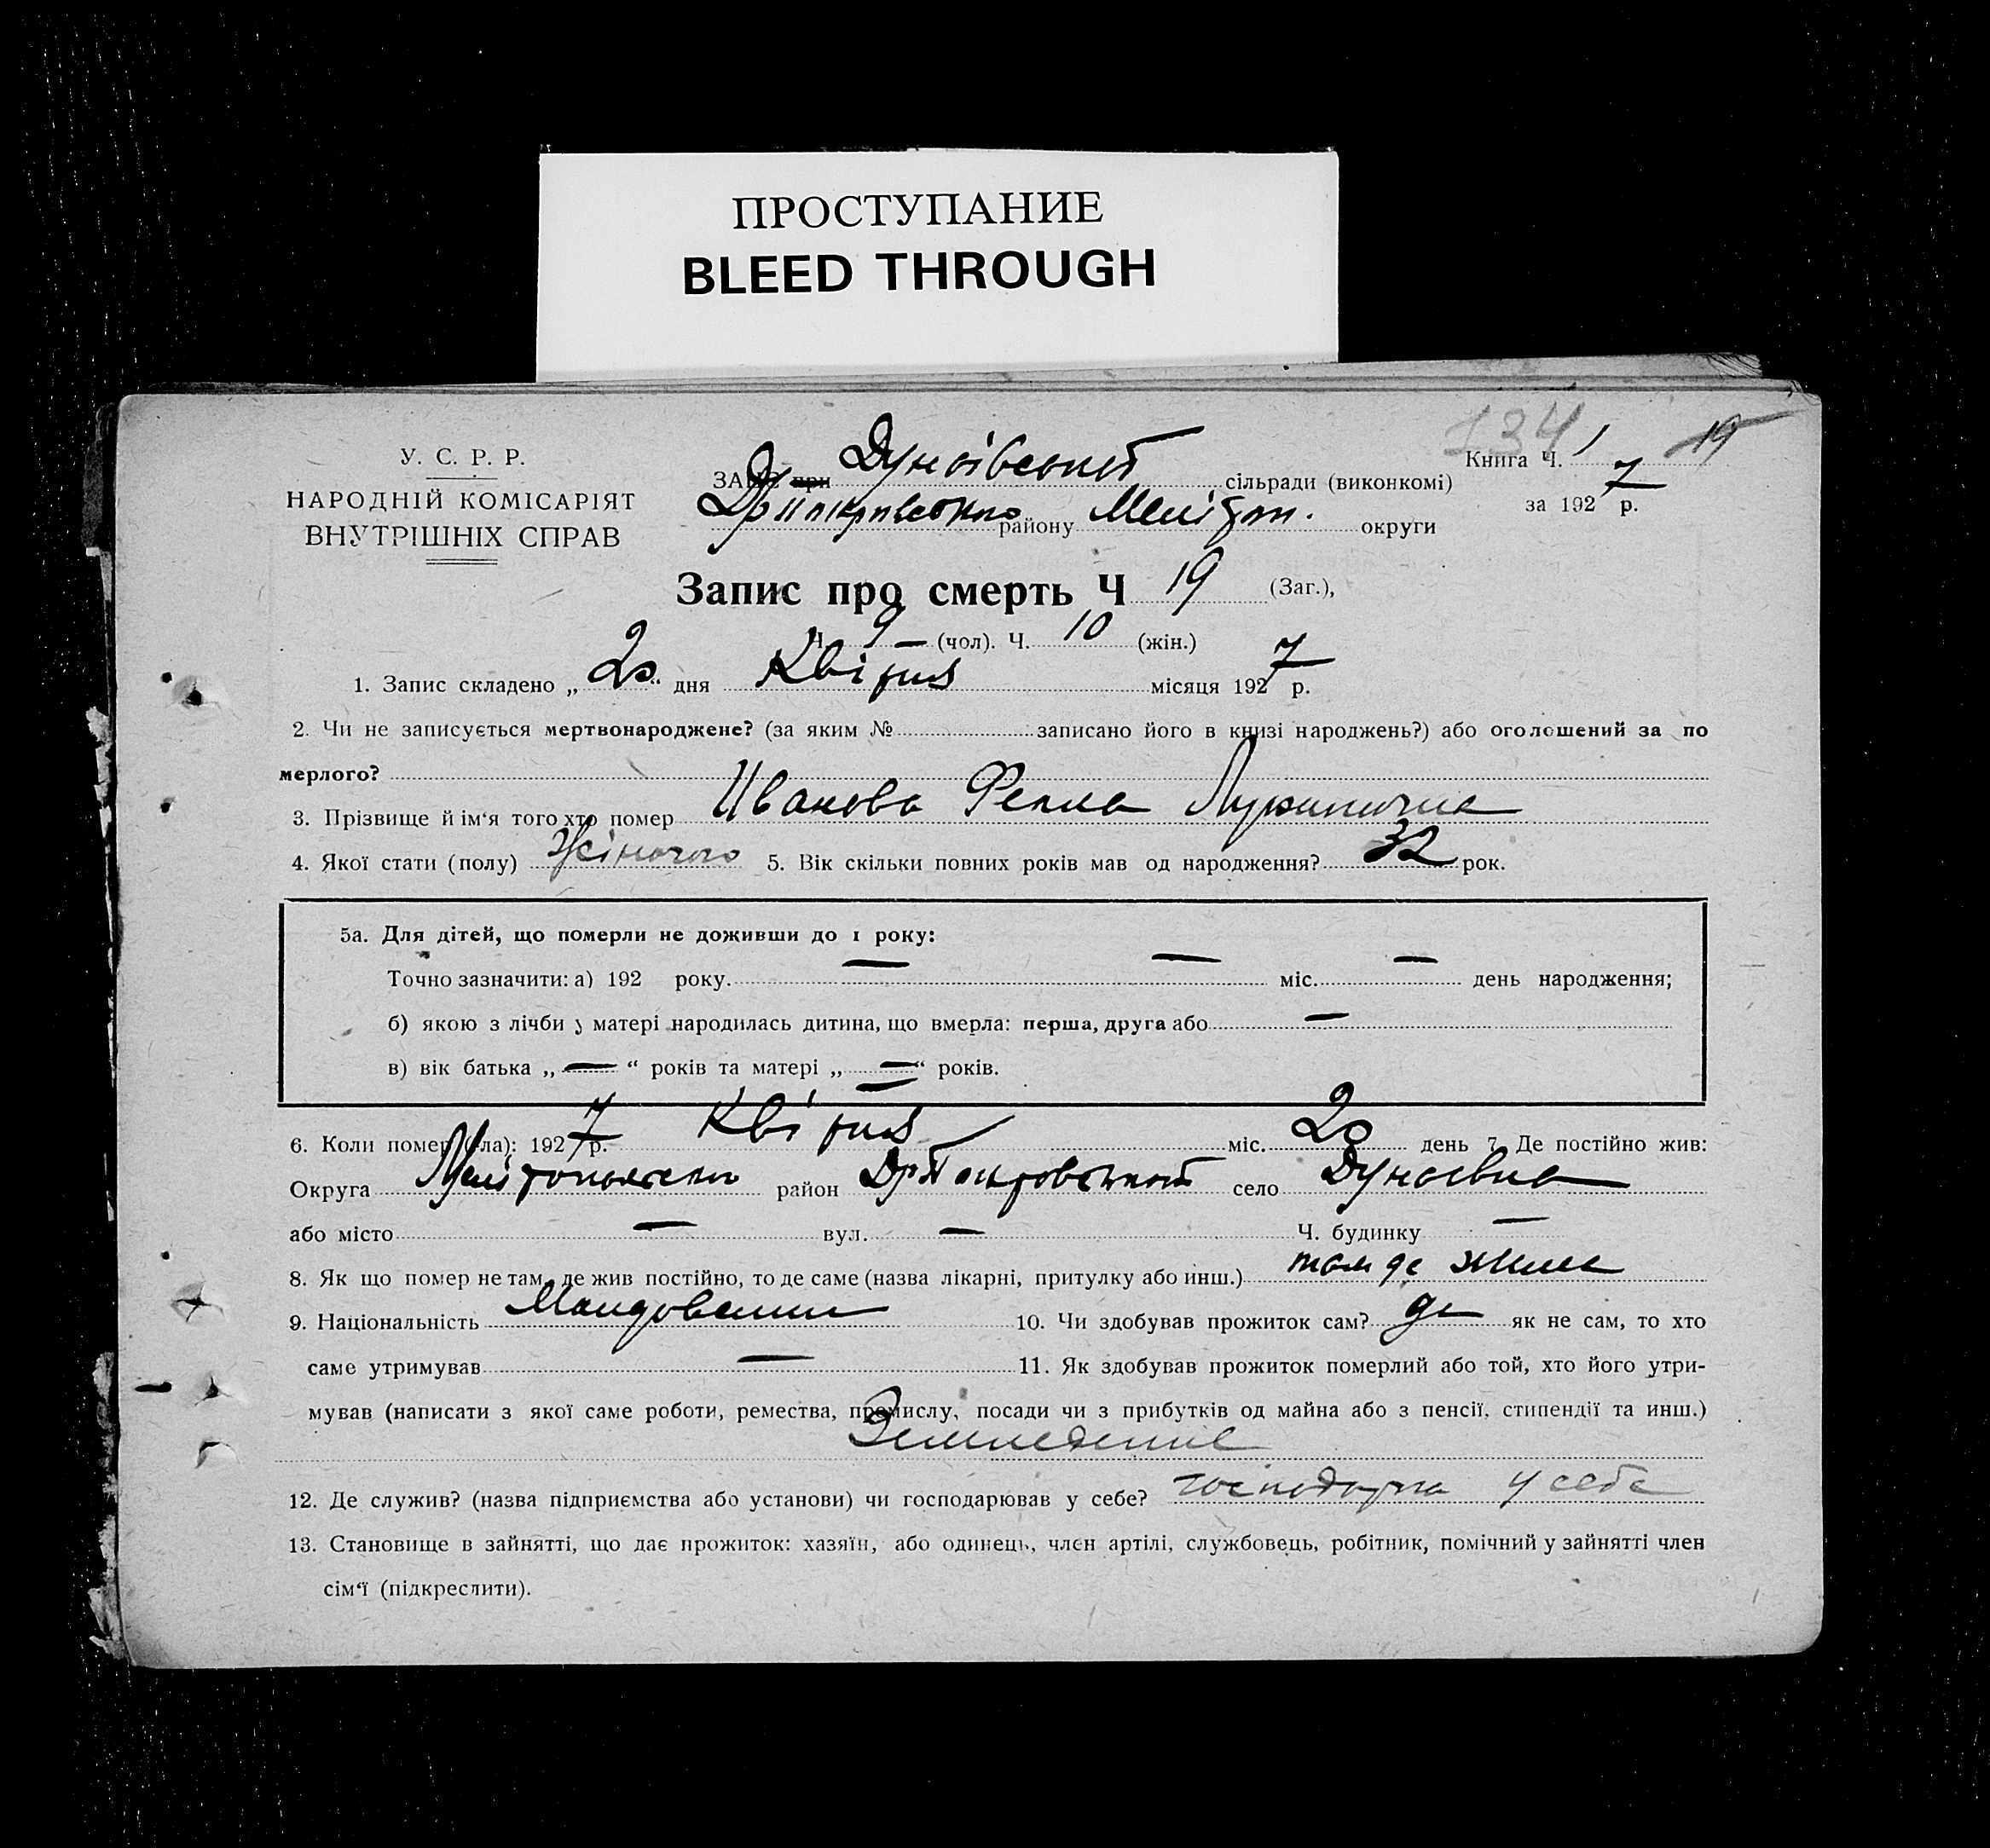 ПРОСТУПАНИЕ
BLEED THROUGH
134 19
У. С. Р. Р.
НАРОДНІЙ КОМІСАРІЯТ
ВНУТРІШНІХ СПРАВ
ЗАПИС при Дунаівської сільради (виконкомі)
району Меліт. округи
Книга Ч. 1
за 1927 р.
Запис про смерть Ч 19 (Заг.),
Ч. 9 (чол). Ч. 10 (жін.)
1. Запис складено „ 20 “ дня Квітня місяця 1927 р.
2. Чи не записується мертвонароджене? (за яким № записано його в книзі народжень?) або оголошений за по
мерлого?
3. Прізвище й ім‘я того хто помер Иванова Фекла
4. Якої стати (полу) Жіночого 5. Вік скільки повних років мав од народження? 32 рок.
5а. Для дітей, що померли не доживши до 1 року:
Точно зазначити: а) 192 року. — — міс. — день народження;
б) якою з лічби у матері народилась дитина, що вмерла: перша, друга або —
в) вік батька „ — “ років та матері „ — “ років.
6. Коли помер (ла): 1927 р. Квітня міс. 20 день 7. Де постійно жив:
Округа район село Дунаевка
або місто — вул. — Ч. будинку —
8. Як що помер не там, де жив постійно, то де саме (назва лікарні, притулку або инш.) там де жила
9. Національність 10. Чи здобував прожиток сам? да як не сам, то хто
саме утримував — 11. Як здобував прожиток померлий або той, хто його утри-
мував (написати з якої саме роботи, ремества, промислу, посади чи з прибутків од майна або з пенсії, стипендії та инш.)
12. Де служив? (назва підприємства або установи) чи господарював у себе? у себе
13. Становище в зайнятті, що дає прожиток: хазяїн, або одинець, член артілі, службовець, робітник, помічний у зайнятті член
сім‘ї (підкреслити).